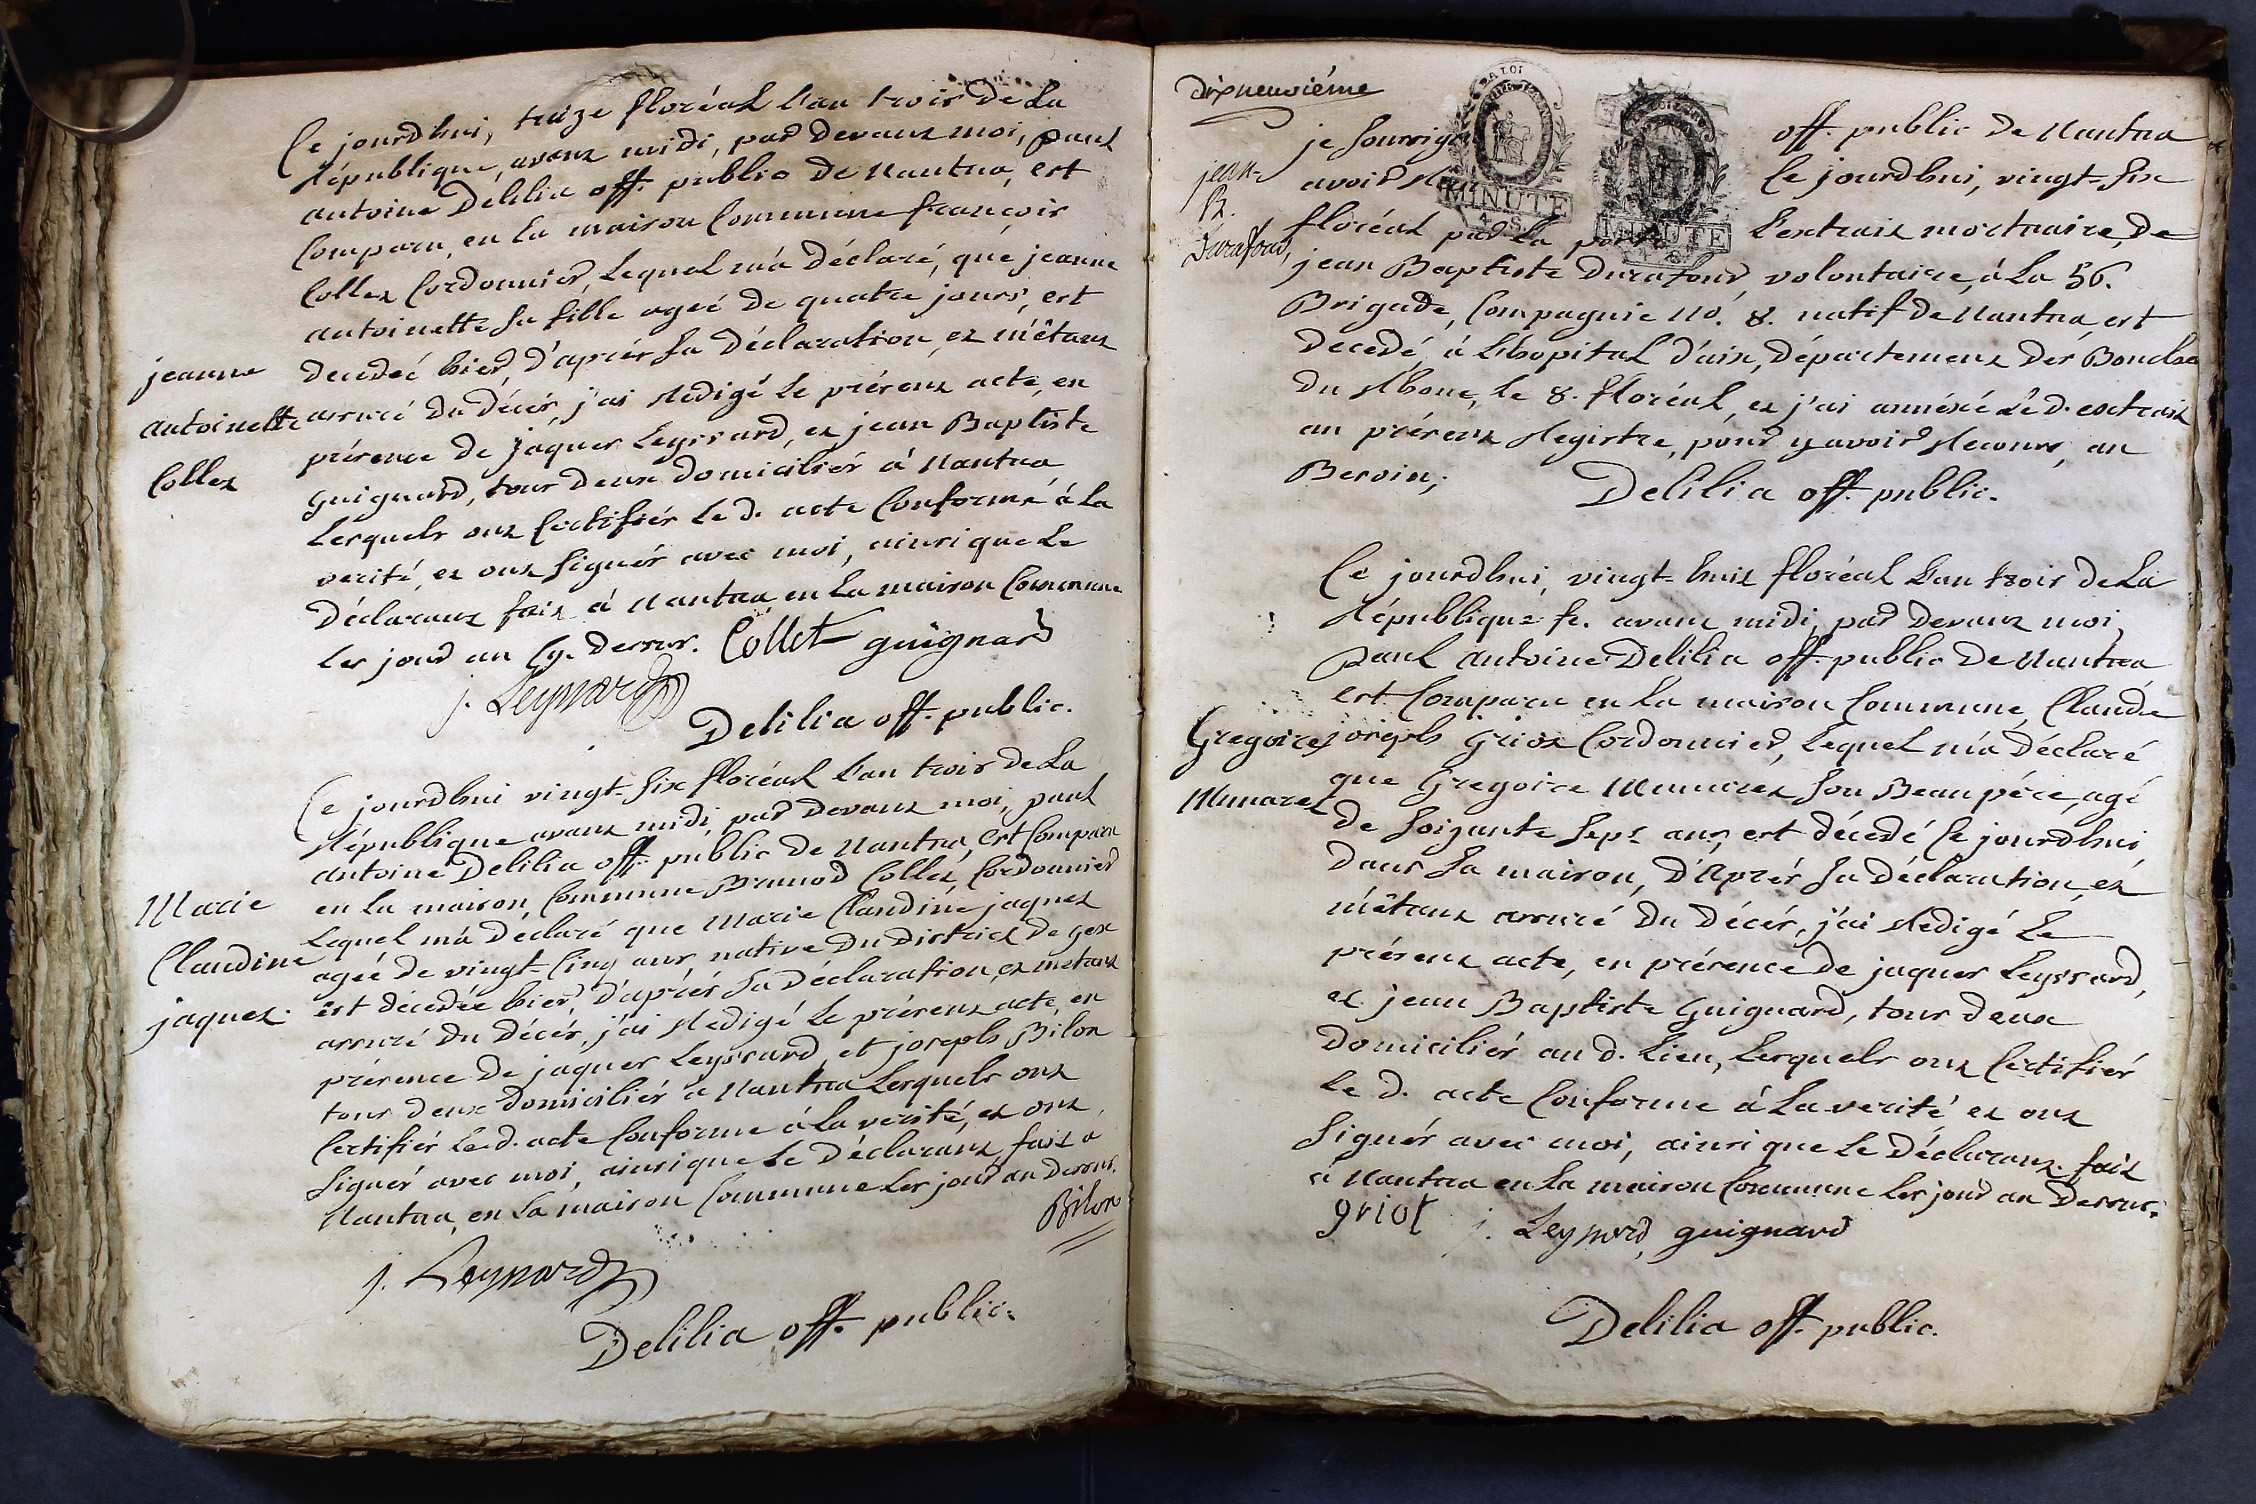 Ce jourdhui, treize floréal l'an trois de La
République, avant midi, par devant moi, paul
antoine Délilia off. public de Nantua, est
Comparu, en La maison Commune françois
Collet Cordonnier, Lequel m'a déclaré, que jeanne
antoinette sa fille ageé de quatre jours, est
jeanne
décedeé hier, d'après sa déclaration, et m'étant
antoinette
assuré du décès, j'ai Redigé Le présent acte, en
présence de jaques Leyssard, et jean Baptiste
Collet
guignard, tous deux domiciliés à Nantua
Lesquels ont Certifiés Le d. acte Conforme à La
verité, et ont signés avec moi, ainsi que Le
déclarant fait à Nantua en La maison Commune
Les jour an Cy. dessus. Collet guignard
j. Leyssard
Delilia off. public.
Ce jourdhui vingt-six floréal L'an trois de La
République avant midi, par devant moi, paul
antoine Delilia off. public de Nantua, est Comparu
en La maison Commune Brunod Collet, Cordonnier
Marie
Lequel m'a declaré que Marie Claudine jaquet
Claudine
ageé de vingt-Cinq ans, native du district de gex
jaquet.
est décedée hier, d'après sa déclaration, et m'etant
assuré du décès, j'ai Redigé Le présent acte, en
présence de jaques Leyssard, et joseph Bilon
tous deux domiciliés a Nantua Lesquels ont
Certifiés Le d. acte Conforme à La verité, et ont
signés avec moi, ainsi que Le déclarant, fait a
Nantua, en La maison Commune Les jour an dessus.
Bilon
j. Leyssard
Delilia off. public.
dixneuvième
LA LOI
je soussigné off. public de Nantua
jean-
avoir Reçu Ce jourdhui, vingt-six
B.
MINUTE
4. S.
MINUTE
floréal par La poste L'extrait mortuaire, de
durafour,
jean Baptiste durafour, volontaire, à La 56.
Brigade, Compagnie No. 8. natif de Nantua, est
decedé, à L'hopital d'aix, département des Bouches
du Rhone, Le 8. floréal, et j'ai annéxé Le d. extrait
au présent Registre, pour y avoir Recours, au
Besoin,
Delilia off. public.
Ce jourdhui, vingt-huit floréal L'an trois de La
République fe. avant midi, par devant moi,
paul antoine Delilia off. public de Nantua
est Comparu en La maison Commune, Claude
Gregoire
joseph Griot Cordonnier, Lequel m'a déclaré
Munaret
que Gregoire Munaret son Beau pére, agé
de soixante sept ans, est décedé Ce jourdhui
dans sa maison, d'Après sa déclaration, et
m'étant assuré du décès, j'ai Redigé Le
présent acte, en présence de jaques Leyssard,
et jean Baptiste Guignard, tous deux
domiciliés au d. Lieu, Lesquels ont Certifiés
Le d. acte Conforme à La verité, et ont
signés avec moi, ainsi que Le déclarant. fait
à Nantua en La maison Commune Les jour an dessus.
griot j. Leyssard, guignard
Delilia off. public.